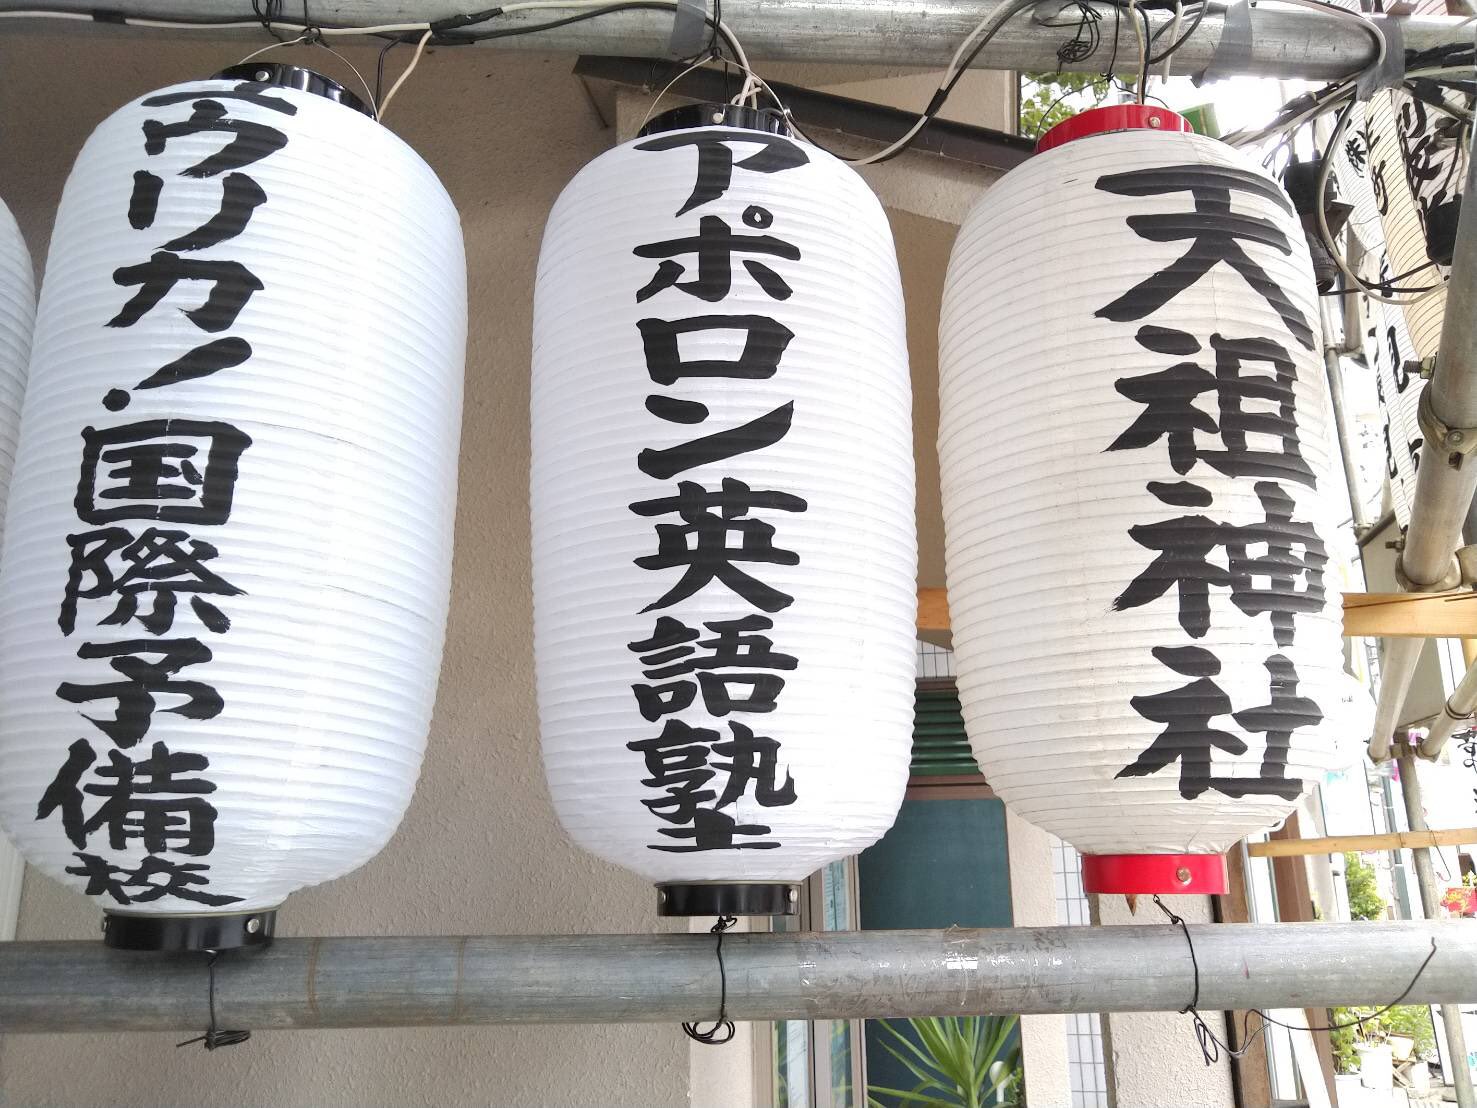 天祖神社
アポロン英語塾
ユウリカ!国際予備校